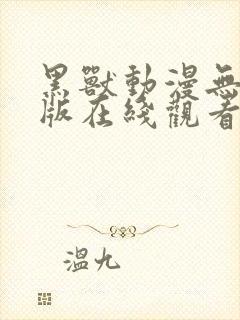 黑獸動漫無
版在綫觀看
溫九